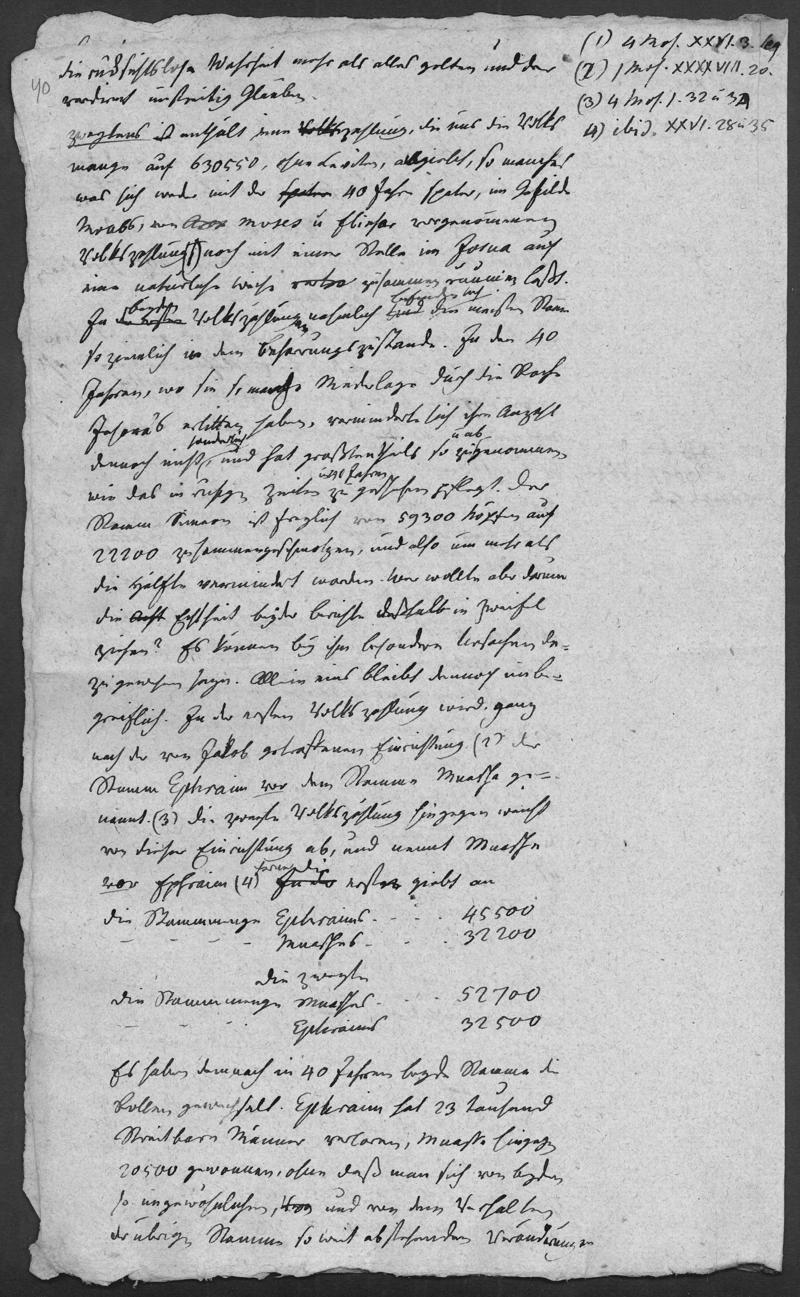 40
die rücksichtslose Wahrheit mehr als alles gelten und der
verdient unstreitig Glauben.
zweytens ist enthält eine Volkszählung, die uns die Volks
menge auf 630550, ohne Leviten, angiebt, so manches
was sich weder mit der später 40 Jahre später, im Gefilde
Moabs, von Moses u Eliesar vorgenommenen
Volkszählung (1) noch mit einer Stelle im Josua auf
eine natürliche Weise zusammen räumen läßt.
In beyden Volkszählungen nehmlich befinden sich die meisten Stäm
so ziemlich in dem Beharrungszustande. In den 40
Jahren, wo sie so manche Niederlage durch die Rache
Jehova's erlitten haben, verminderte sich ihre Anzahl
dennoch nicht sonderlich, und hat größtentheils so zu u ab genommen
wie das in ruhigen Zeiten in 40 Jahren zu geschehen pflegt. Der
Stamm Simeon ist freylich von 59300 Köpfen auf
22200 zusammengeschmolzen, und also um mehr als
die Hälfte vermindert worden. Wer wollte aber darum
die Acht Echtheit beyder Berichte deßhalb in Zweifel
ziehen? Es können bey ihm besondere Ursachen da-
zu gewesen seyn. Allein eins bleibt dennoch unbe-
greiflich. In der ersten Volkszählung wird ganz
nach der von Jakob getroffenen Einrichtung (2) der
Stamm Ephraim vor dem Stamme Manasse ge-
nannt. (3) die zweyte Volkszählung hingegen weicht
von dieser Einrichtung ab, und nennt Manasse
vor Ephraim (4) ferner die In der erste giebt an
die Stammmenge Ephraims - - - 45500
- - - Manasses - - 32200
die zweyte
die Stammmenge Manasses - - 52700
- - - Ephraims 32500
Es haben demnach in 40 Jahren beyde Stämme die
Rollen gewechselt. Ephraim hat 23 tausend
Streitbare Männer verloren, Manasse hingegen
20500 gewonnen, ohne daß man sich von beyden
so ungewöhnlichen, und von dem Verhalten
der übrigen Stämme so weit abstehenden Veränderungen
(1) 4 Mos. XXVI. 3. seq
(2) 1 Mos. XXXXVIII. 20.
(3) 4 Mos. 1. 32 u 34
4) ibid. XXVI. 28 u 35